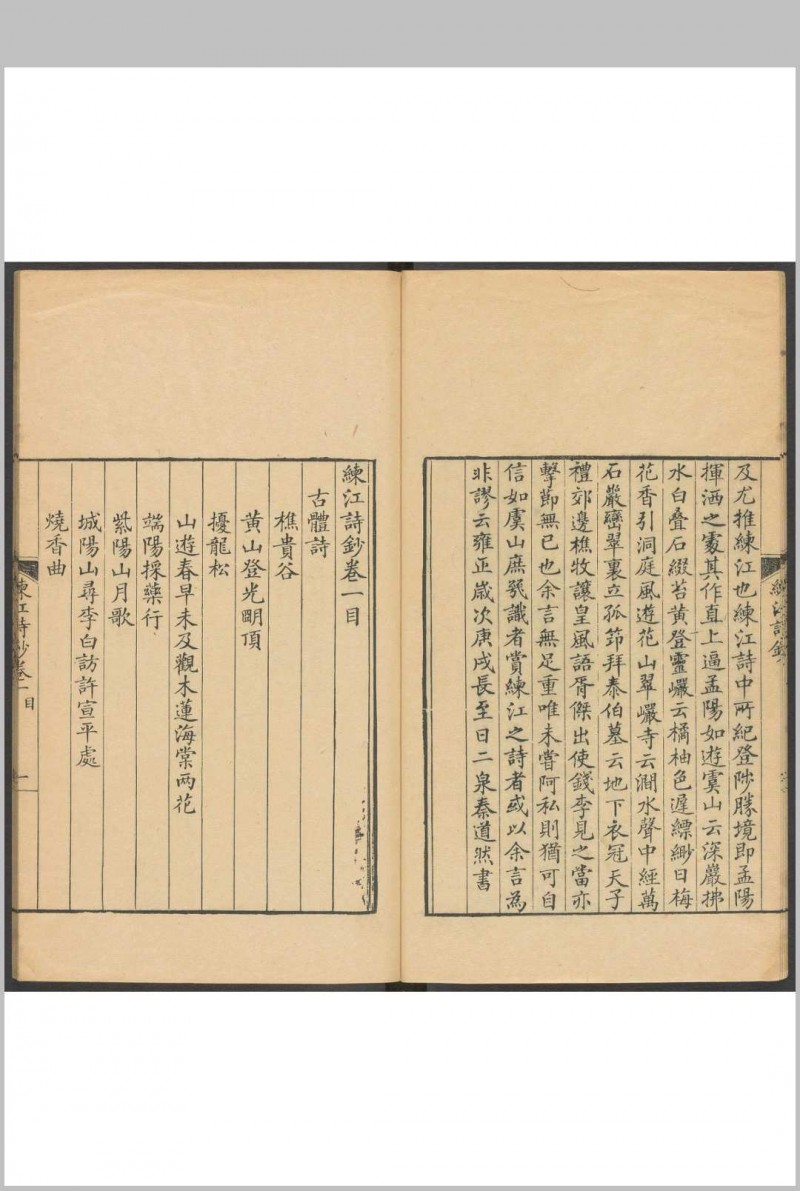 及尤推練江也練江詩中所紀登陟勝境即孟陽
揮洒之處其作直上逼孟陽如遊虞山云深巖拂
水白疊石綴苔黃登靈巖云橘柚色遲縹緲日梅
花香引洞庭風遊花山翠巖寺云澗水聲中經萬
石巖巒翠裏立孤筇拜泰伯墓云地下衣冠天子
禮郊邊樵牧讓皇風語胥傑出使錢李見之當亦
擊節無已也余言無足重唯未嘗阿私則猶可自
信如虞山庶幾識者賞練江之詩者或以余言為
非謬云雍正歲次庚戌長至日二泉秦道然書
練江詩鈔卷一目
古體詩
樵貴谷
黃山登光明頂
擾龍松
山遊春早未及觀木蓮海棠兩花
端陽採藥行
紫陽山月歌
城陽山尋李白訪許宣平處
燒香曲
練江詩鈔卷一目
一